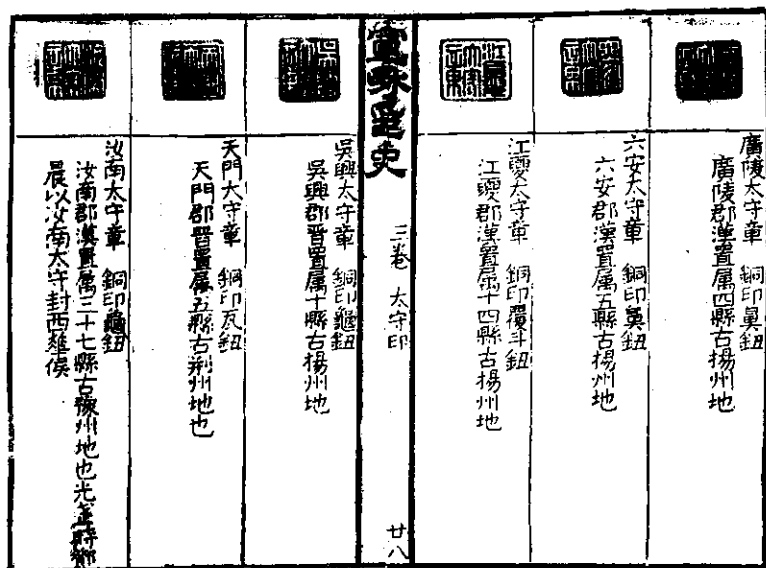 廣陵太守章　銅印鼻鈕
廣陵郡漢置属四縣古揚州地
六安太守章　銅印鼻鈕
六安郡漢置属五縣古揚州地
江夏太守章　銅印覆斗鈕
江夏郡漢置属十四縣古揚州地
三卷　太守印
廿八
吳興太守章　銅印龜鈕
吳興郡晉置属十縣古揚州地
天門太守章　銅印瓦鈕
天門郡晉置属五縣古荆州地也
汝南太守章　銅印龜鈕
汝南郡漢置属三十七縣古豫州地也光武時
晨以汝南太守封西華侯